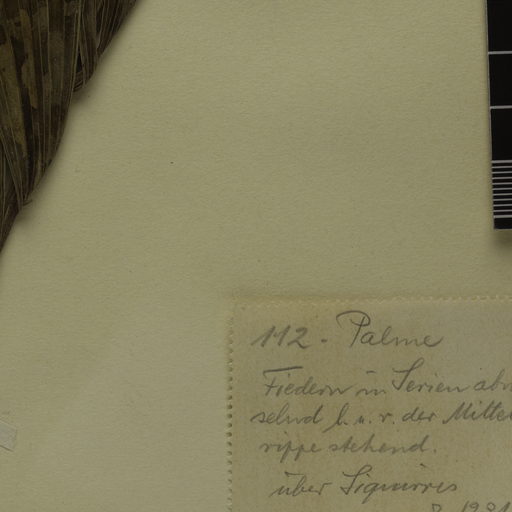 112. Palme
Fiedern in Serien abw
selnd l. u. r. der Mittel
rippe stehend.
über Siquirres